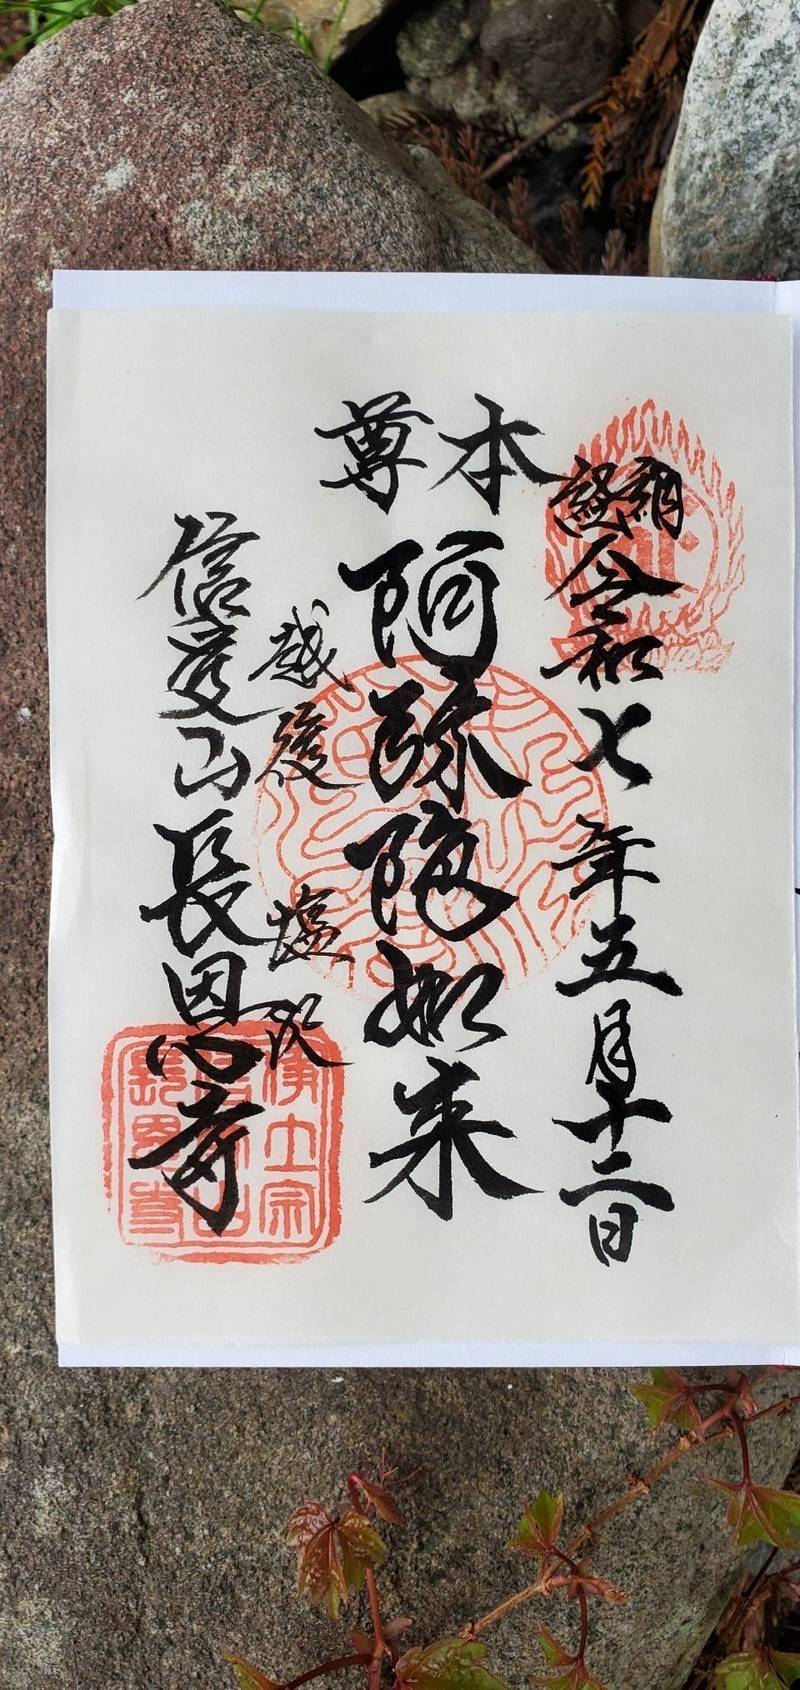 納経
令和七年五月十二日
本尊
阿弥陀如来
越後 塩沢
信受山長恩寺
浄土宗
長恩寺